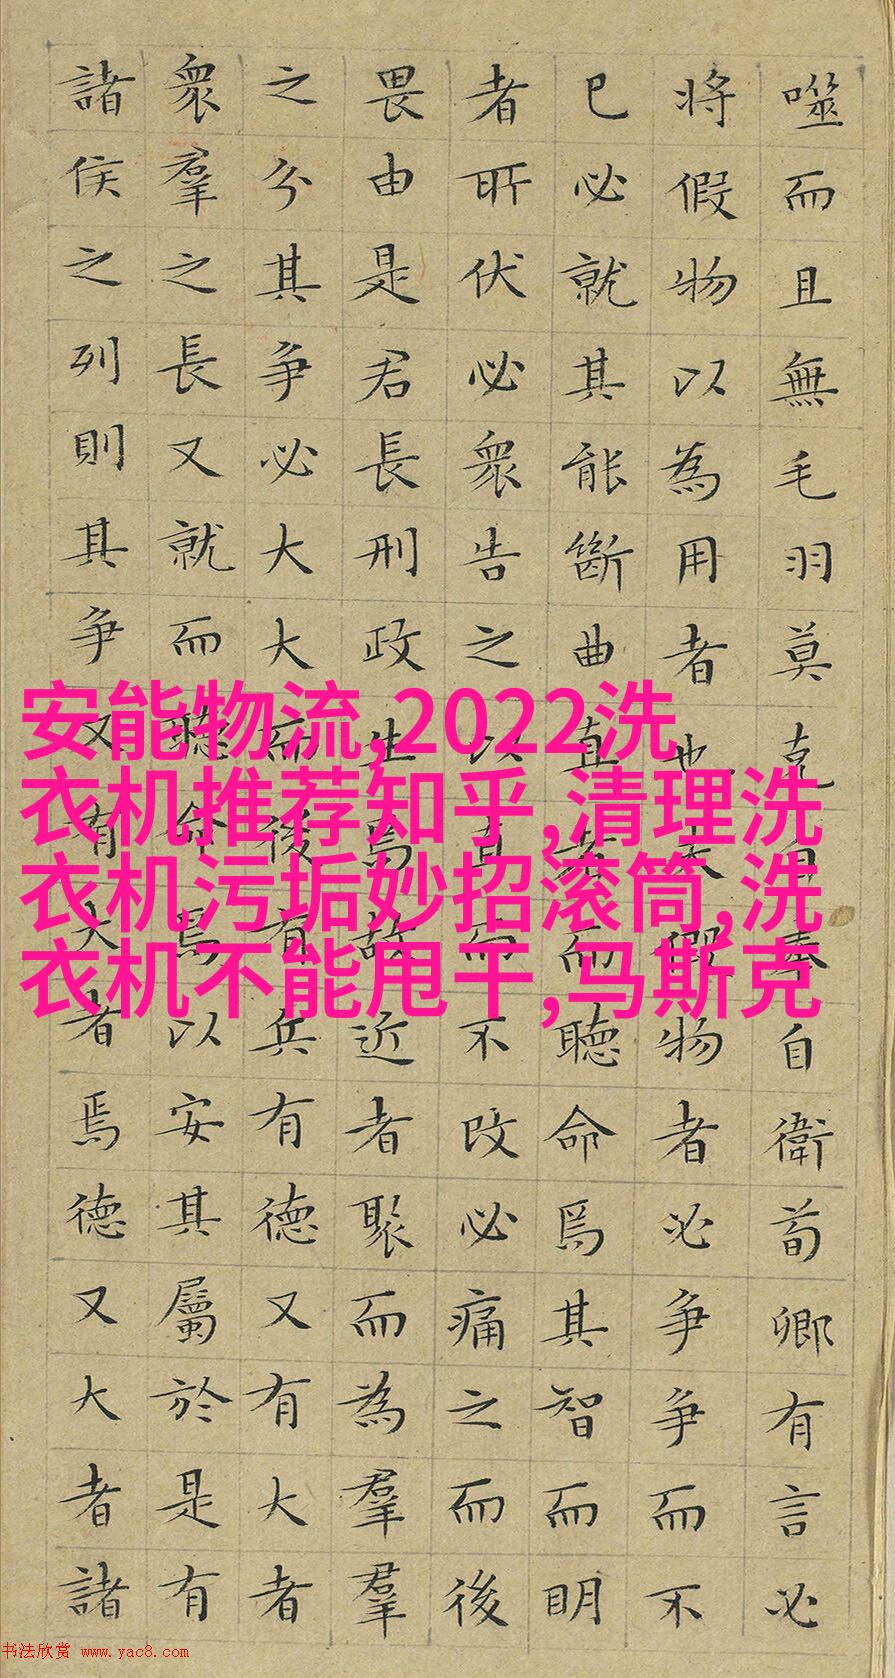 噬而且無毛羽莫克自奉自衛荀卿有言必
將假物以為用者也夫假物者必争争而不
已必就其能斷曲直者而聽命焉其智而明
者所伏必衆告之以直而不改必痛之而後
畏由是君長刑政生焉故近者聚而為羣羣
之分其争必大大而後有兵有德又有大者
衆羣之長又就而聽命焉以安其屬於是有
諸侯之列則其争又有大者焉德又大者諸
安能物流,2022洗
衣机推荐知乎,清理洗
衣机污垢妙招滚筒,洗
衣机不能甩干,马斯克
书法欣赏 www.yac8.com